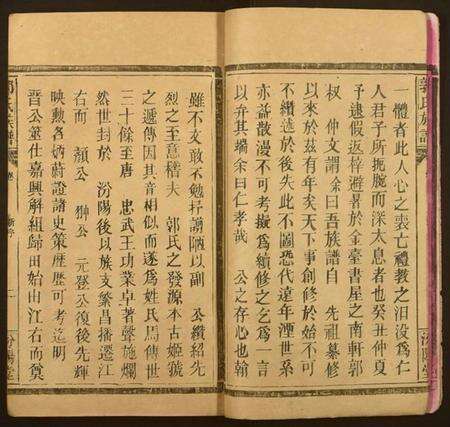 郭氏族譜
一體者此人心之喪亡禮教之汨没爲仁
人君子所扼腕而深太息者也癸丑仲夏
予逮假返梓避暑於金臺書屋之南軒郭
叔 仲文謂余曰吾族譜自 先祖纂修
以來於兹有年矣天下事創修於始不可
不續述於後失此不圖恐代遠年湮世系
亦益散漫不可考擬爲續修之乞爲一言
以弁其端余曰仁孝哉 公之存心也翰
汾陽堂
雖不文敢不勉抒謭陋以副 公纘紹先
烈之至意稽夫 郭氏之發源本古姬虢
之遞傳因其音相似而遂爲姓氏周傳世
三十餘至唐 忠武王功業卓著聲施爛
然世封於 汾陽後以族支繁昌播遷江
右而 顔公 翀公 元登公復後先輝
映勲名炳蔚證諸史策歴歴可考迄明
晋公筮仕嘉興解組歸田始由江右而奠
郭氏族譜
汾陽堂